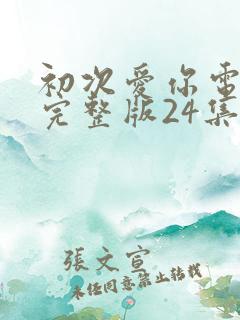 初次愛你電
完整版24集
張文宣
未任同意禁止转载